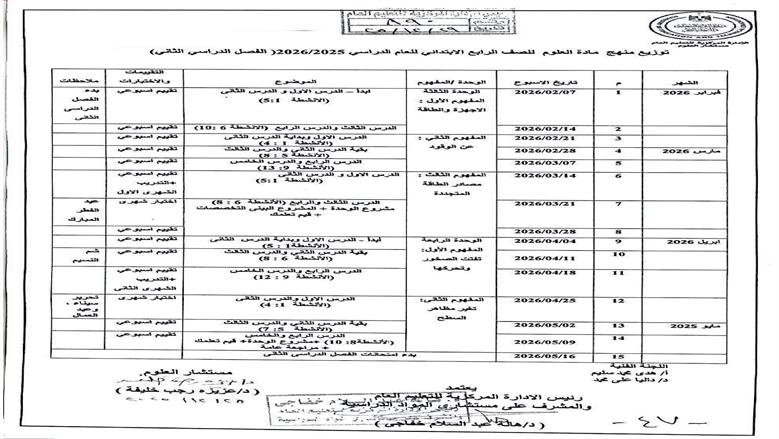 الإدارة المركزية للتعليم العام
مستشار العلوم
توزيع منهج مادة العلوم للصف الرابع الابتدائي للعام الدراسي 2026/2025( الفصل الدراسي الثاني)
الشهر م تاريخ الاسبوع الوحدة /المفهوم الموضوع التقييمات والاختبارات ملاحظات
فبراير 2026 1 2026/02/07 الوحدة الثالثة المفهوم الأول : الاجهزة والطاقة ابدأ – الدرس الاول و الدرس الثانى (الأنشطة 1:5) تقييم اسبوعي بدء الفصل الدراسى الثانى
2 2026/02/14 الدرس الثالث والدرس الرابع (الأنشطة 6 :10) تقييم اسبوعي
3 2026/02/21 المفهوم الثاني : عن الوقود الدرس الاول وبداية الدرس الثانى (الأنشطة 1 : 4) تقييم اسبوعي
مارس 2026 4 2026/02/28 بقية الدرس الثاني والدرس الثالث (الأنشطة 5 : 8) تقييم اسبوعي
5 2026/03/07 الدرس الرابع والدرس الخامس (الأنشطة 9: 13) تقييم اسبوعي
6 2026/03/14 المفهوم الثالث : مصادر الطاقة المتجددة الدرس الاول و الدرس الثانى (الأنشطة 1:5) تقييم اسبوعي +التدريب الشهرى الاول
7 2026/03/21 الدرس الثالث والرابع (الأنشطة 6 : 8) مشروع الوحدة + المشروع البينى التخصصات + قيم تعلمك اختبار شهرى عيد الفطر المبارك
8 2026/03/28 تقييم اسبوعي
ابريل 2026 9 2026/04/04 الوحدة الرابعة المفهوم الأول: تفتت الصخور وتحركها ابدأ – الدرس الاول وبداية الدرس الثانى (الأنشطة1 : 5) تقييم اسبوعي
10 2026/04/11 بقية الدرس الثاني والدرس الثالث (الأنشطة 6 : 8) تقييم اسبوعي شم النسيم
11 2026/04/18 الدرس الرابع والدرس الخامس (الأنشطة 9 : 12) تقييم اسبوعي +التدريب الشهرى الثانى
12 2026/04/25 المفهوم الثاني: تغير مظاهر السطح الدرس الاول والدرس الثانى (الأنشطة 1: 4) اختبار شهرى تحرير سيناء ، وعيد العمال
مايو 2025 13 2026/05/02 بقية الدرس الثاني والدرس الثالث (الأنشطة 5: 7) تقييم اسبوعي
14 2026/05/09 الدرس الرابع والخامس (الأنشطة8: 10) +مشروع الوحدة+ قيم تعلمك + مراجعة عامة تقييم اسبوعي
15 2026/05/16 بدء امتحانات الفصل الدراسى الثانى
اللجنة الفنية
أ/ هدى محمد سليم
د/ داليا على محمد
مستشار العلوم.
د/عزيزه رجب خليفة
يعتمد
رئيس الادارة المركزية للتعليم العام
والمشرف على مستشاري المواد الدراسية
(د/هالة عبد السلام خفاجى)
- ٤٧ -